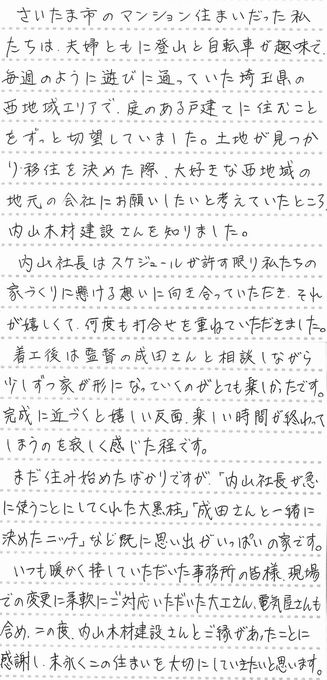 さいたま市のマンション住まいだった私
たちは、夫婦ともに登山と自転車が趣味で、
毎週のように遊びに通っていた埼玉県の
西地域エリアで、庭のある戸建てに住むこと
をずっと切望していました。土地が見つか
り移住を決めた際、大好きな西地域の
地元の会社にお願いしたいと考えていたところ、
内山木材建設さんを知りました。
内山社長はスケジュールが許す限り私たちの
家づくりに懸ける想いに向き合っていただき、それ
が嬉しくて、何度も打合せを重ねていただきました。
着工後は監督の成田さんと相談しながら
少しずつ家が形になっていくのがとても楽しかったです。
完成に近づくと嬉しい反面、楽しい時間が終わって
しまうのを寂しく感じた程です。
まだ住み始めたばかりですが、「内山社長が急
に使うことにしてくれた大黒柱」「成田さんと一緒に
決めたニッチ」など既に思い出がいっぱいの家です。
いつも暖かく接していただいた事務所の皆様、現場
での変更に柔軟にご対応いただいた大工さん、電気屋さんも
含め、この度、内山木材建設さんとご縁があったことに
感謝し、末永くこの住まいを大切にしていきたいと思います。